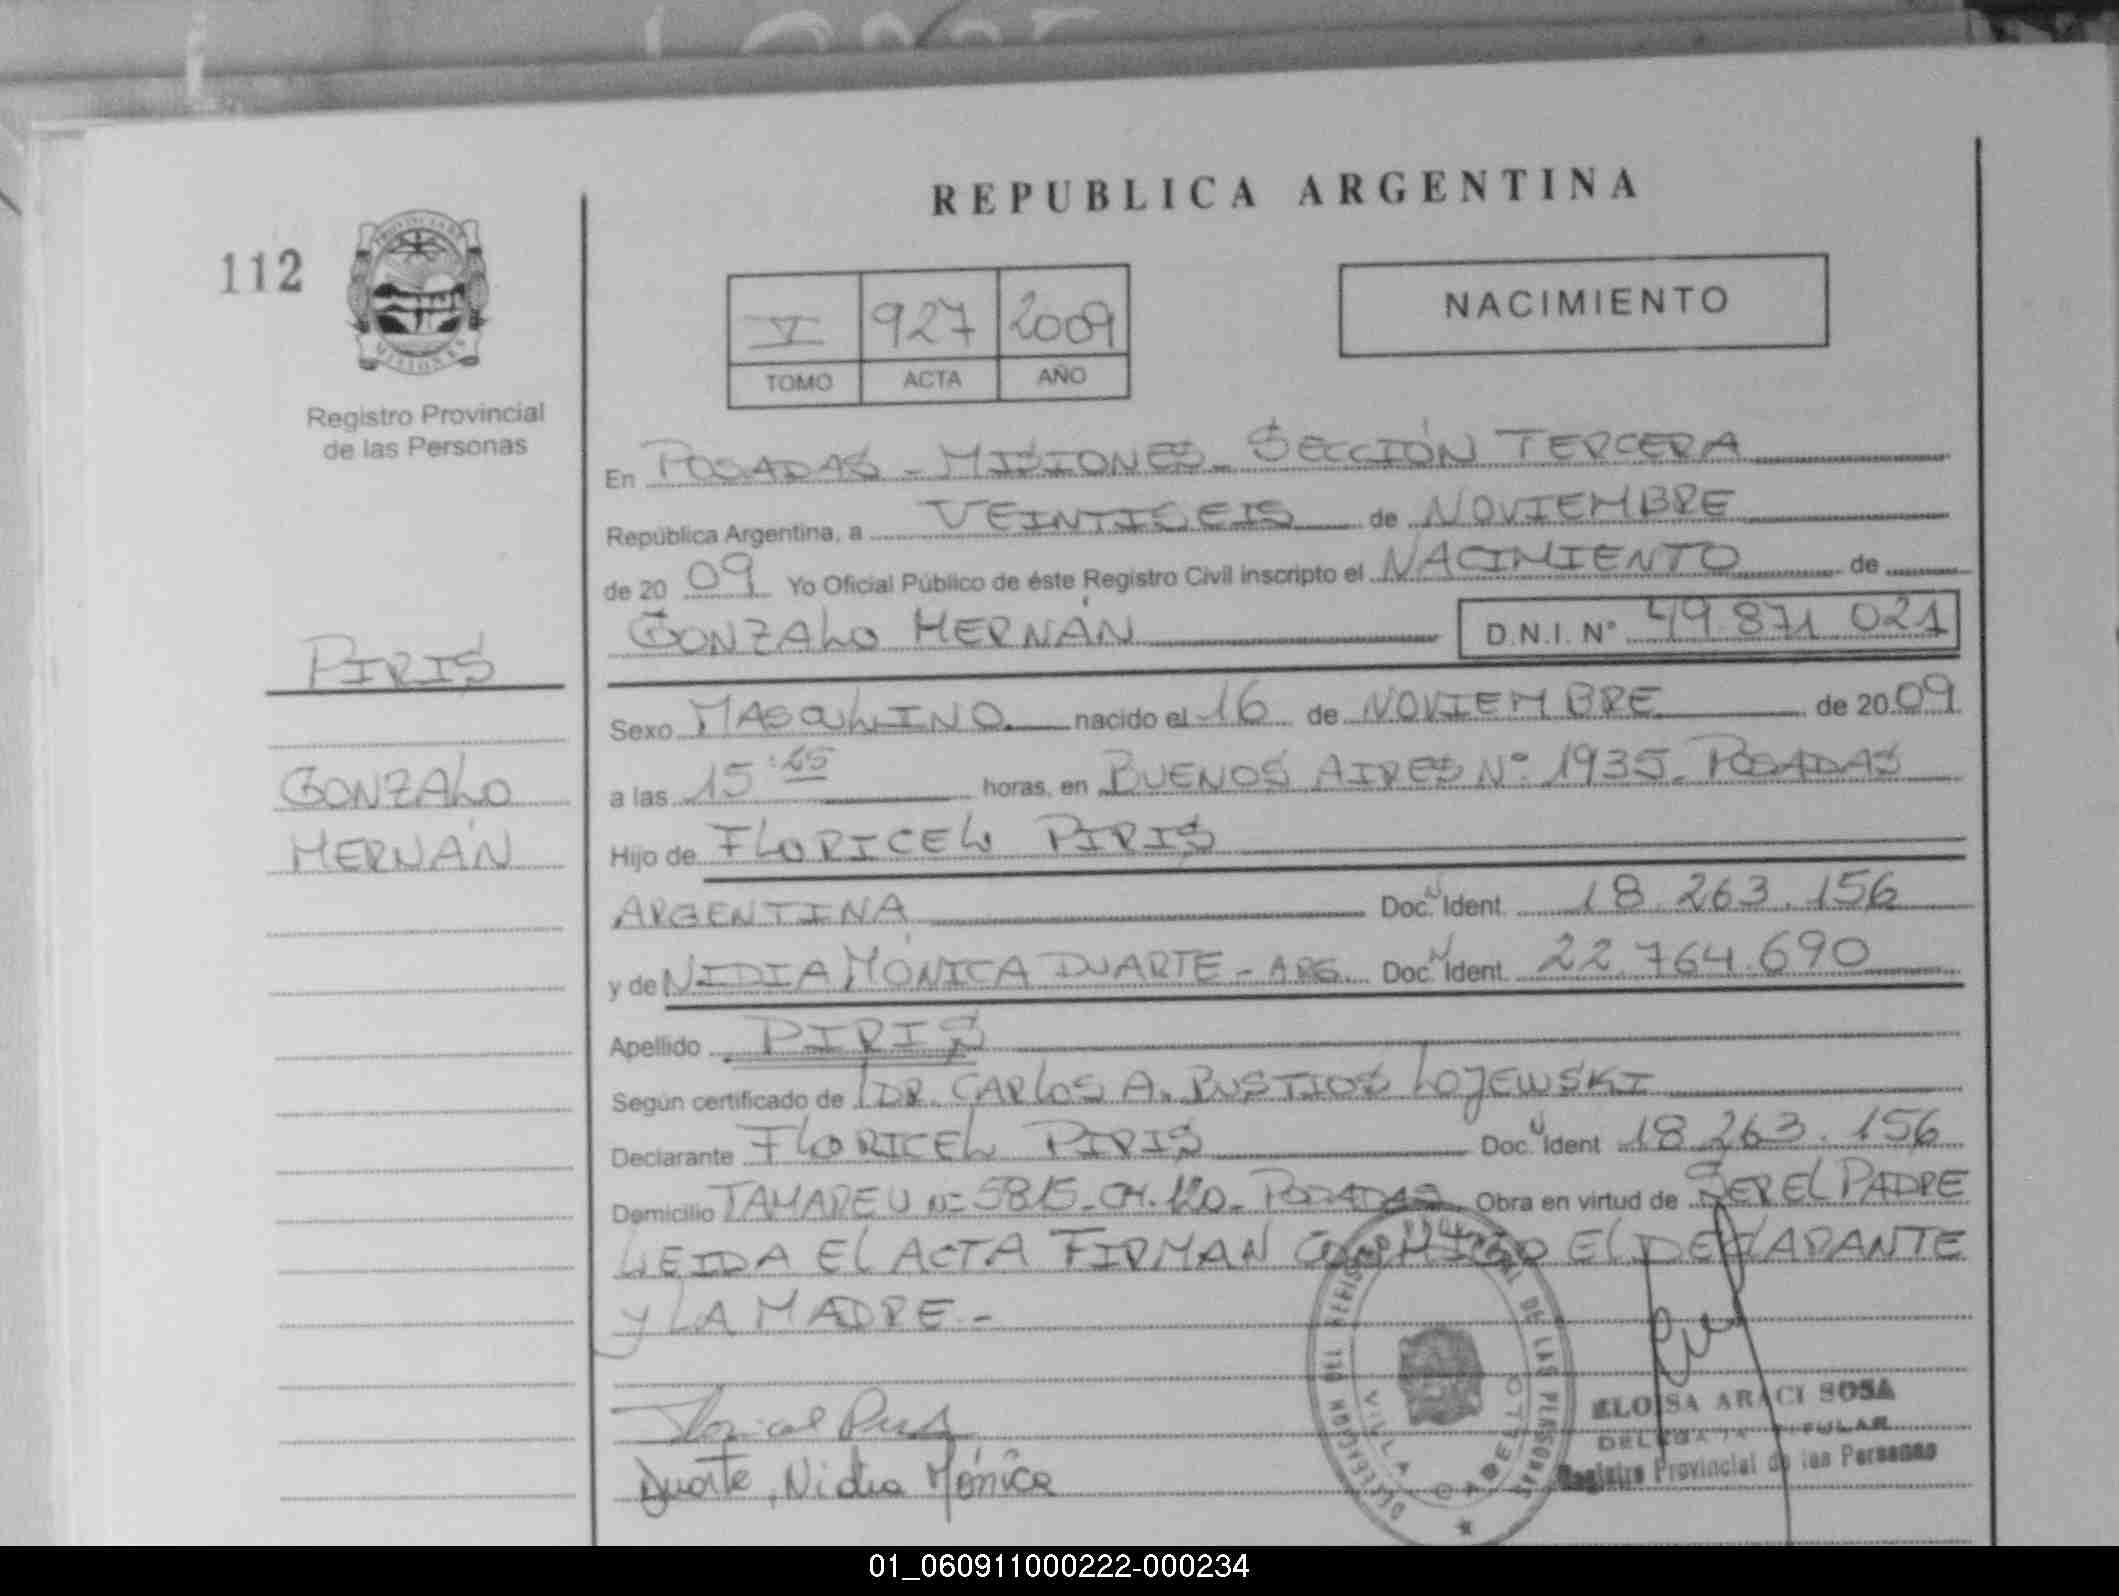 REPUBLICA ARGENTINA
112
NACIMIENTO
V 927 2009
TOMO ACTA AÑO
Registro Provincial
de las Personas
En POSADAS - MISIONES - SECCIÓN TERCERA
República Argentina, a VEINTISEIS de NOVIEMBRE
de 20 09 Yo Oficial Público de éste Registro Civil inscripto el NACIMIENTO de
GONZALO HERNÁN D.N.I. N° 49.871 021
PIRIS
GONZALO
HERNÁN
Sexo MASCULINO nacido el 16 de NOVIEMBRE de 20 09
a las 15:25 horas, en BUENOS AIRES N° 1935. POSADAS
Hijo de FLORICEL PIRIS
ARGENTINA Doc. Ident. 18.263.156
y de NIDIA MÓNICA DUARTE - ARG. Doc. Ident. 22.764.690
Apellido PIRIS
Según certificado de DR. CARLOS A. BUSTIOS LOJEWSKI
Declarante FLORICEL PIRIS Doc. Ident 18.263.156
Domicilio N° 5815 - CH. 120 - POSADAS Obra en virtud de SER EL PADRE
LEIDA EL ACTA FIRMAN CONMIGO EL DECLARANTE
Y LA MADRE -
Floricel Piris
Duarte, Nidia Mónica
DELEGACION DEL REGISTRO PROVINCIAL DE LAS PERSONAS
VILLA CABELLO
ELOISA ARACI SOSA
DELEGADA TITULAR
Registro Provincial de las Personas
01_060911000222-000234